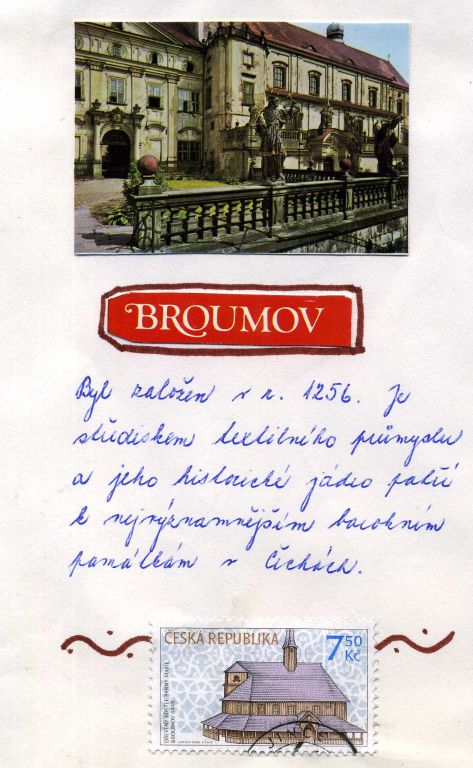 BROUMOV
Byl založen v r. 1256. Je
střediskem textilního průmyslu
a jeho historické jádro patří
k nejvýznamnějším barokním
památkám v Čechách.
ČESKA REPUBLIKA
7,50
Kč
DŘEVĚNÝ KOSTEL PANNY MARIE
BROUMOV 1449